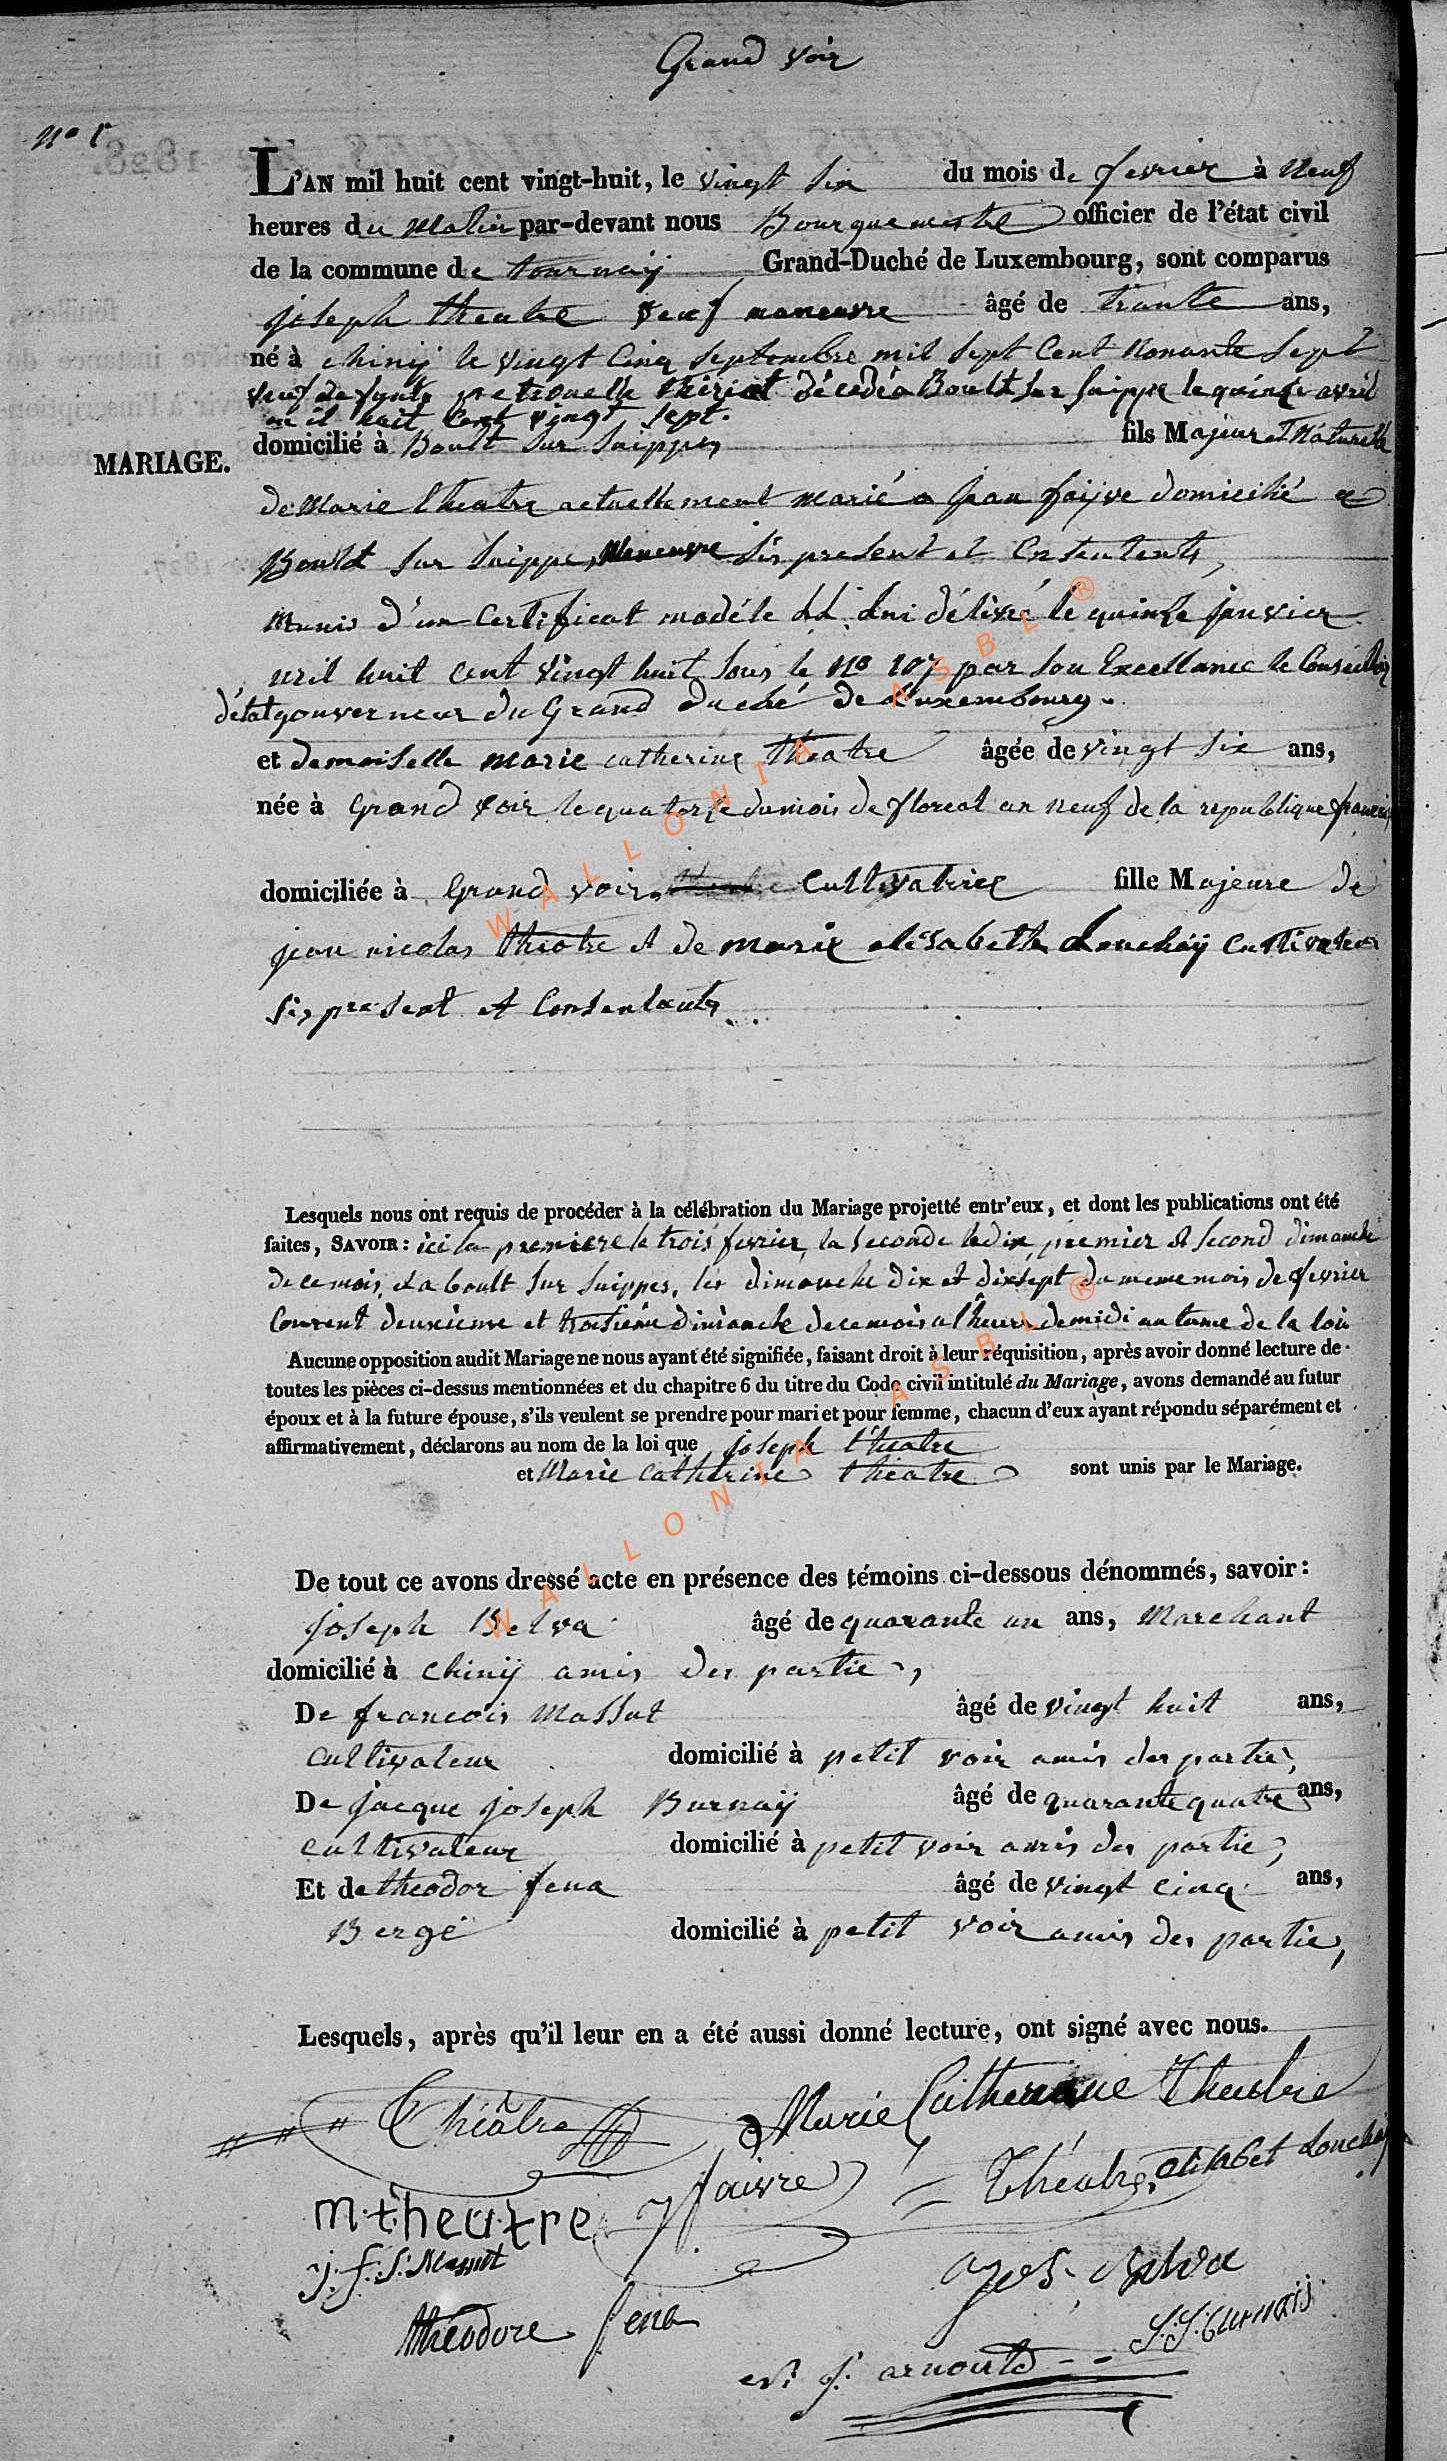 Grand Voir
N° 1er
L'AN mil huit cent vingt-huit, le vingt six du mois de fevrier à Neuf
heures du Matin par-devant nous Bourguemestre officier de l'état civil
de la commune de tournaÿ Grand-Duché de Luxembourg, sont comparus
joseph theatre veuf maneuvre âgé de trante ans,
né à chinÿ le vingt Cinq septembre mil sept Cent Nonante sept
veuf de petronelle thiriot décédé a Boult sur suippe le quinze avril
mil huit Cent vingt sept.
MARIAGE.
domicilié à Boult sur suippes fils Majeur et Naturelle
de Marie theatre actuellement marié a jean faÿve domicilié a
Boult sur suippe, Maneuvre sis present et Consentents,
Munis d'un Certificat modéle LL. Lui délivré le quinze janvier
mil huit cent vingt huit sous le N° 107 par son Excellance le Conseiller
d'état gouverneur du Grand duché de Luxembourg.
et demoiselle marie catherine theatre âgée de vingt six ans,
née à Grand voir le quatorze du mois de floreal an neuf de la republique francais
domiciliée à Grand voir, Cultivatrice fille Majeure de
jean nicolas theatre et de marie elisabeth Louchaÿ Cultivateur
sis present et Consentants
Lesquels nous ont requis de procéder à la célébration du Mariage projetté entr'eux, et dont les publications ont été
faites, SAVOIR: ici la premiere le trois fevrier, la seconde le dix, premier et second dimanche
de ce mois, et a boult sur suippes, les dimanche dix et dixsept du meme mois de fevrier
Courent deuxieme et troisiéme dimanche de ce mois a l'heure de midi au terme de la loi
Aucune opposition audit Mariage ne nous ayant été signifiée, faisant droit à leur réquisition, après avoir donné lecture de
toutes les pièces ci-dessus mentionnées et du chapitre 6 du titre du Code civil intitulé du Mariage, avons demandé au futur
époux et à la future épouse, s'ils veulent se prendre pour mari et pour femme, chacun d'eux ayant répondu séparément et
affirmativement, déclarons au nom de la loi que joseph theatre
et Marie Catherine theatre sont unis par le Mariage.
De tout ce avons dressé acte en présence des témoins ci-dessous dénommés, savoir:
joseph Belva âgé de quarante un ans, Marchant
domicilié à chinÿ amis des partie,
De francois Massut âgé de vingt huit ans,
cultivateur domicilié à petit voir amis des partie,
De jacque joseph Burnaÿ âgé de quarante quatre ans,
cultivateur domicilié à petit voir amis des partie,
Et de theodor fena âgé de vingt cinq ans,
Bergé domicilié à petit voir amis des partie,
Lesquels, après qu'il leur en a été aussi donné lecture, ont signé avec nous.
Théâtre Marie Catherine Theatre
j faivre Théatre, elisabet Louchaÿ
m theatre
j. f. s. Massut
Jos. Belva
théodore fena
J. J. Burnaij
N. J. arnould
WALLONIA ASBL ®
WALLONIA ASBL ®